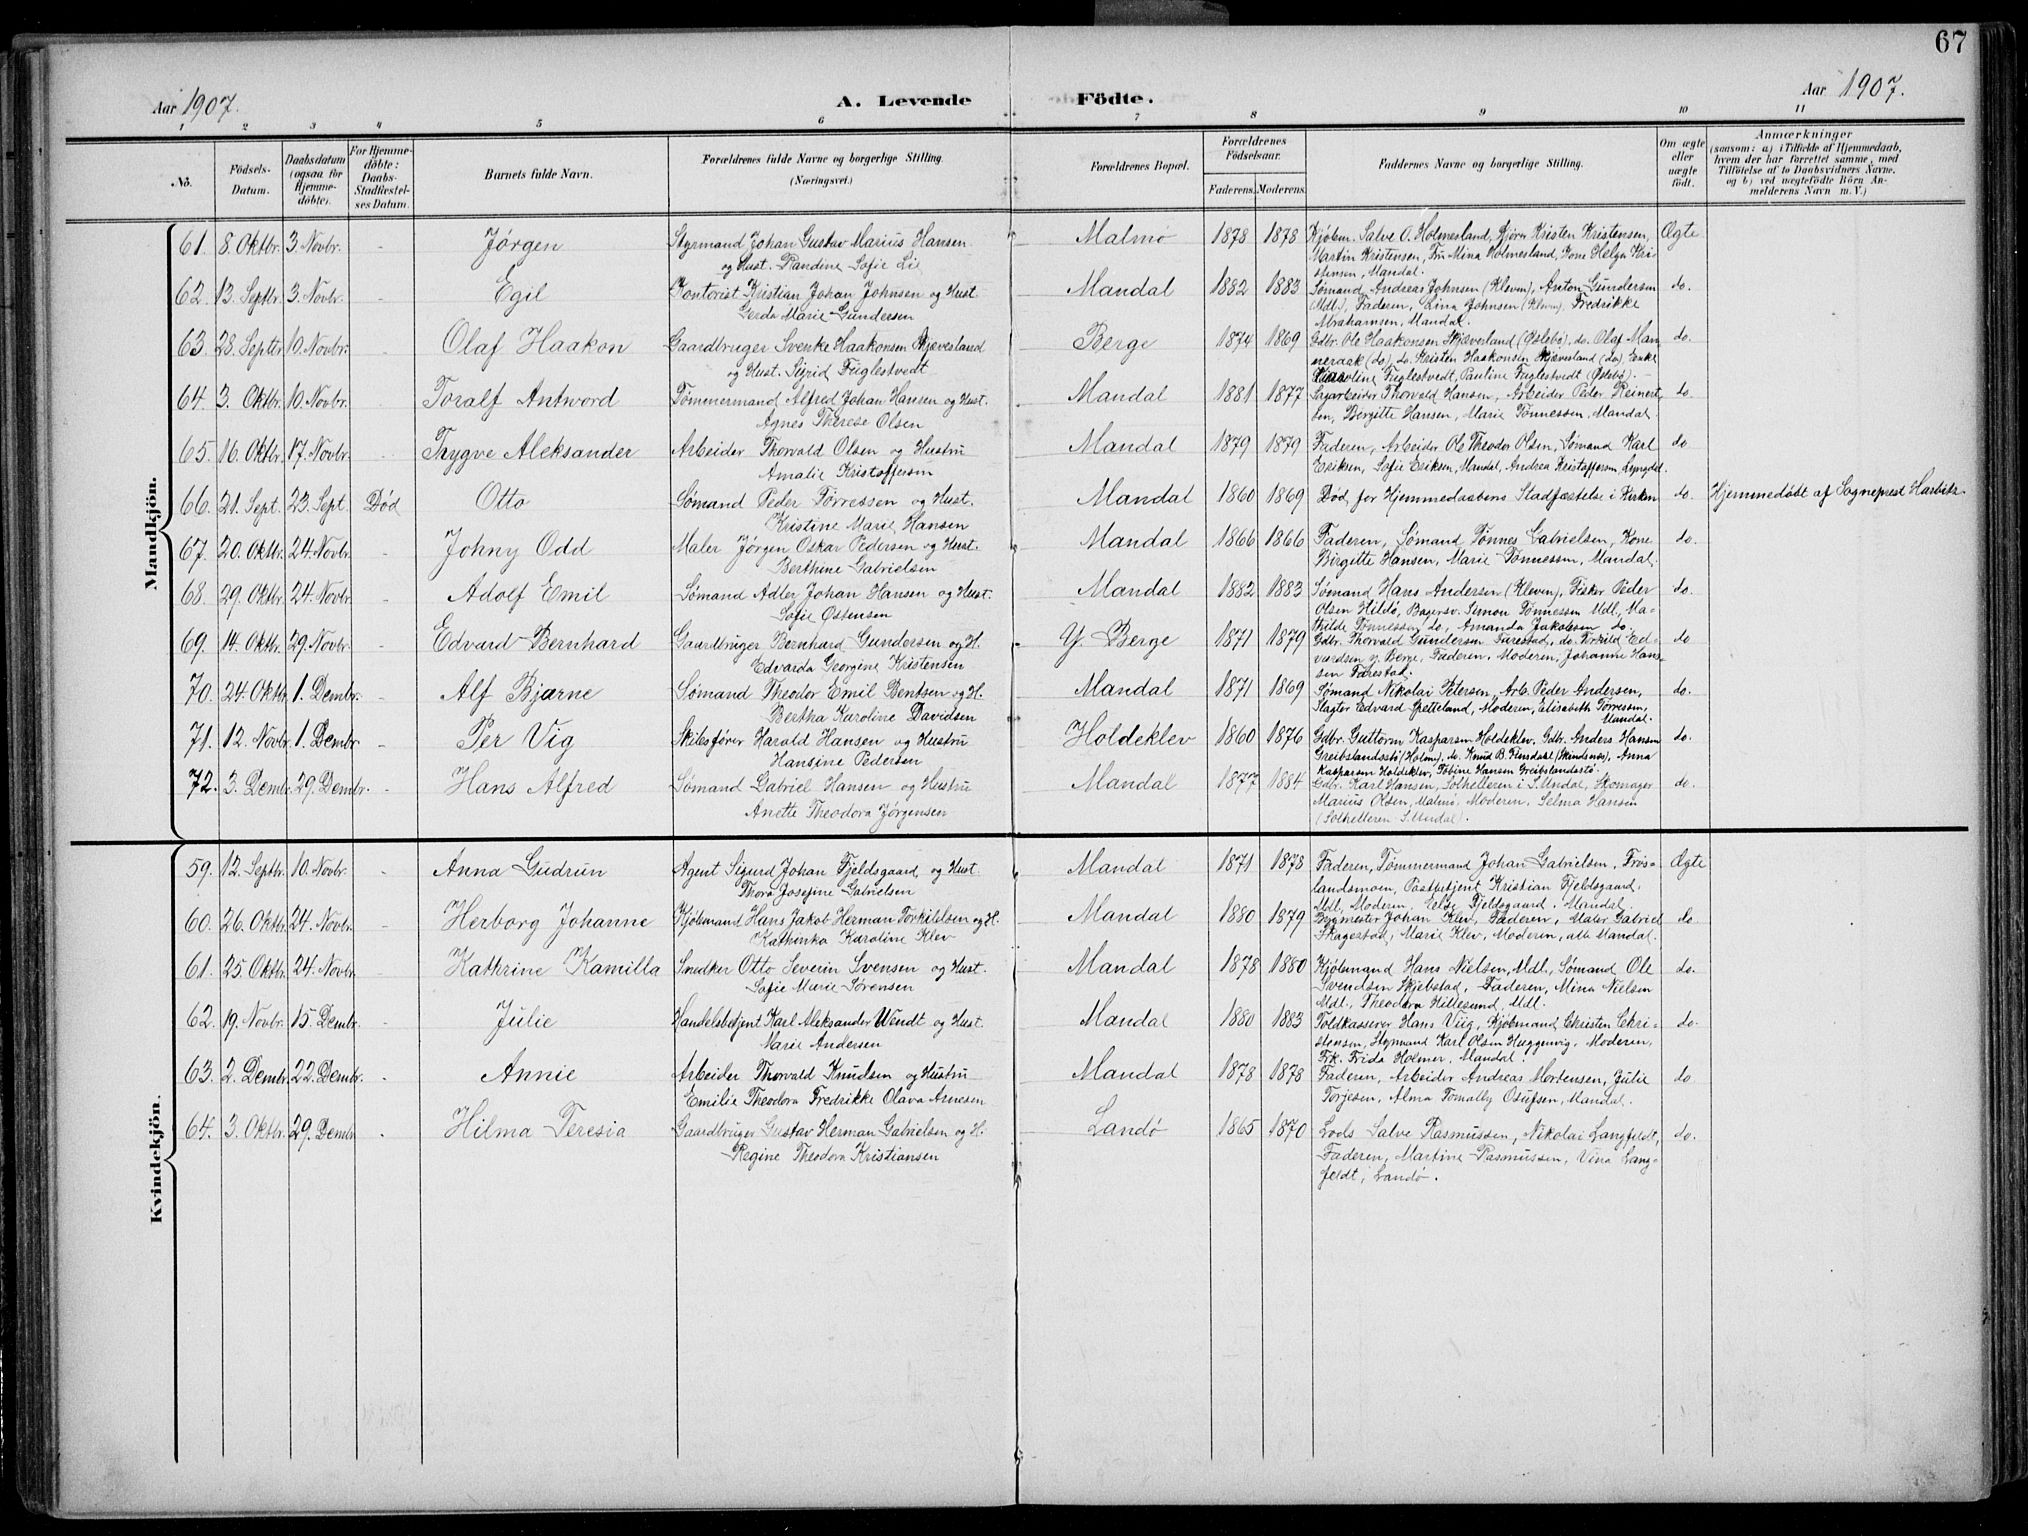 67
Aar 1907.
A. Levende Födte.
Aar 1907.
1 2 3 4 5 6 7 8 9 10 11
No.
Födsels-Datum.
Daabsdatum (ogsaa for Hjemme-döbte).
For Hjemme-döbte: Daabs-Stadfæstel-ses Datum.
Barnets fulde Navn.
Forældrenes fulde Navne og borgerlige Stilling. (Næringsvei.)
Forældrenes Bopæl.
Forældrenes Födselsaar.
Faderens. Moderens.
Faddernes Navne og borgerlige Stilling.
Om ægte eller uægte födt.
Anmærkninger
(saasom: a) i Tilfælde af Hjemmedaab, hvem der har forrettet samme, med Tilföielse af to Daabsvidners Navne. og b) ved uægtefödte Börn An-melderens Navn m. V.)
Mandkjön.
61. 8 Oktbr. 3 Novbr. - Jørgen Styrmand Johan Gustav Marius Hansen Malmø 1878 1878 Kjøbm. Salve O. Holmesland, Kristen Kristensen, Ægte
og Hust. Randine Sofie Lie Martin Kristensen, Fru Mina Holmesland, Kone Helga Kri-
stensen, Mandal.
62. 13. Septbr. 3. Novbr. - Egil Kontorist Kristian Johan Johnsen og Hust. Mandal 1882 1883 Sømand Andreas Johnsen (Kleven), Anton Gundersen do.
Gerda Marie Gundersen (Mdl.), Faderen, Lina Johnsen (Kleven), Fredrikke
Abrahamsen, Mandal.
63. 28. Septbr 10. Novbr. - Olaf Haakon Gaardbruger Svenke Haakonsen Skjævesland Berge 1874 1869 Gdbr. Ole Haakonsen Skjæverland (Øslebø), do. Olaf Man- do.
og Hust. Sigrid Fuglestvedt neraak (do), do. Kristen Haakonsen Skjævesland (do) Enke
Karoline Fuglestvedt, Pauline Fuglestvedt (Øslebø).
64. 3. Oktbr. 10. Novbr. - Toralf Antword Tømmermand Alfred Johan Hansen og Hust. Mandal 1881 1877 Sagarbeider Thorvald Hansen, Arbeider Peder Reinert- do.
Agnes Therese Olsen sen, Bergitte Hansen, Marie Tönnessen, Mandal.
65. 16. Oktbr. 17. Novbr. - Trygve Aleksander Arbeider Thorvald Olsen og Hustru Mandal 1879 1879 Faderen, Arbeider Ole Theodor Olsen, Sømand Karl do
Amalie Kristoffersen Eriksen, Sofie Eriksen, Mandal, Andrea Kristoffersen, Lyngdal.
66. 21. Sept. 23. Sept. Død Otto Sømand Peder Tørressen og Hust. Mandal 1860 1869 Død før Hjemmedaabens Stadfæstelse i Kirken do. Hjemmedøbt af Sogneprest Harbitz.
Kristine Marie Hansen
67. 20. Oktbr. 24. Novbr. - Johny Odd Maler Jørgen Oskar Pedersen og Hust. Mandal 1866 1866 Faderen, Sømand Tönnes Gabrielsen, Kone do.
Berthine Gabrielsen Birgitte Hansen, Marie Tönnessen, Mandal.
68. 29. Oktbr. 24. Novbr. - Adolf Emil Sømand Adler Johan Hansen og Hust. Mandal 1882 1883 Sømand Hans Andersen (Kleven), Fisker Peder do.
Sofie Østensen Olsen Hildø, Bagersv. Simon Tønnessen Mdl., Ma-
thilde Tønnessen do, Amanda Jakobsen do.
69. 14. Oktbr. 29. Novbr. - Edvard Bernhard Gaardbruger Bernhard Gundersen og H. Y. Berge 1871 1879 Gdbr. Thorvald Gundersen Farestad, do. Torkild Ed- do
Edvarda Georgine Kristensen vardsen y. Berge, Faderen, Moderen, Johanne Hans-
sen Farestad.
70. 24. Oktbr. 1. Dembr. - Alf Bjarne Sømand Theodor Emil Bentsen og H. Mandal 1871 1869 Sømand Nikolai Petersen, Arb. Peder Andersen, do.
Bertha Karoline Davidsen Slagter Edvard Spetteland, Moderen, Elisabeth Tørressen,
Mandal.
71. 12. Novbr. 1. Dembr. - Per Vig Skibsfører Harald Hansen og Hustru Holdeklev 1860 1876 Gdbr. Guttorm Kaspersen Holdeklev, Gdbr. Anders Hansen do.
Hansine Pedersen Greibslandsstø (Holum), do. Knud B. Finsdal (Skindsnes), Anna
Kaspersen Holdeklev, Tobine Hansen Greibslandsstø.
72. 3. Dembr. 29. Dembr. - Hans Alfred Sømand Gabriel Hansen og Hustru Mandal 1877 1884 Gdbr. Karl Hansen, Solhelleren i S. Undal, Skomager do.
Anette Theodora Jørgensen Marius Olsen, Malmø, Moderen, Selma Hansen
(Solhelleren S. Undal).
Kvindekjön.
59. 12. Septbr. 10. Novbr. - Anna Gudrun Agent Sigurd Johan Fjeldsgaard og Hust. Mandal 1871 1878 Faderen, Tømmermand Johan Gabrielsen, Frøs- Ægte
Thora Josefine Gabrielsen landsmoen, Postbetjent Kristian Fjeldsgaard,
Mdl., Moderen, Else Fjeldsgaard, Mandal.
60. 26. Oktbr. 24. Novbr. - Herborg Johanne Kjøbmand Hans Jakob Herman Torkildsen og H. Mandal 1880 1879 Bygmester Johan Klev, Faderen, Maler Gabriel do.
Kathinka Karoline Klev Skagestad, Marie Klev, Moderen, alle Mandal.
61. 25 Oktbr. 24. Novbr. - Kathrine Kamilla Snedker Otto Severin Svensen og Hust. Mandal 1878 1880 Kjøbmand Hans Nielsen, Mdl., Sømand Ole do.
Sofie Marie Sørensen Svendsen Skjebstad, Faderen, Mina Nielsen
Mdl., Theodora Hillesund, Mdl.
62. 19. Novbr. 15. Dembr. - Julie Handelsbetjent Karl Aleksander Wendt og Hust. Mandal 1880 1883 Toldkasserer Hans Viig, Kjøbmand Christen Chri- do.
Marie Andersen stensen, Styrmand Karl Olsen Huggenvig, Moderen,
Frk. Frida Holmer, Mandal.
63. 2. Dembr. 22. Dembr. - Annie Arbeider Thorvald Knudsen og Hustru Mandal 1878 1878 Faderen, Arbeider Andreas Mortensen, Julie do
Emilie Theodora Fredrikke Olava Arnesen Torjesen, Alma Tomally Osufsen, Mandal.
64. 3. Oktbr. 29. Dembr. - Hilma Teresia Gaardbruger Gustav Herman Gabrielsen og H. Landø 1865 1870 Lods Salve Rasmussen, Nikolai Langfeldt, do.
Regine Theodora Kristiansen Faderen, Martine Rasmussen, Vina Lang-
feldt, Landø.